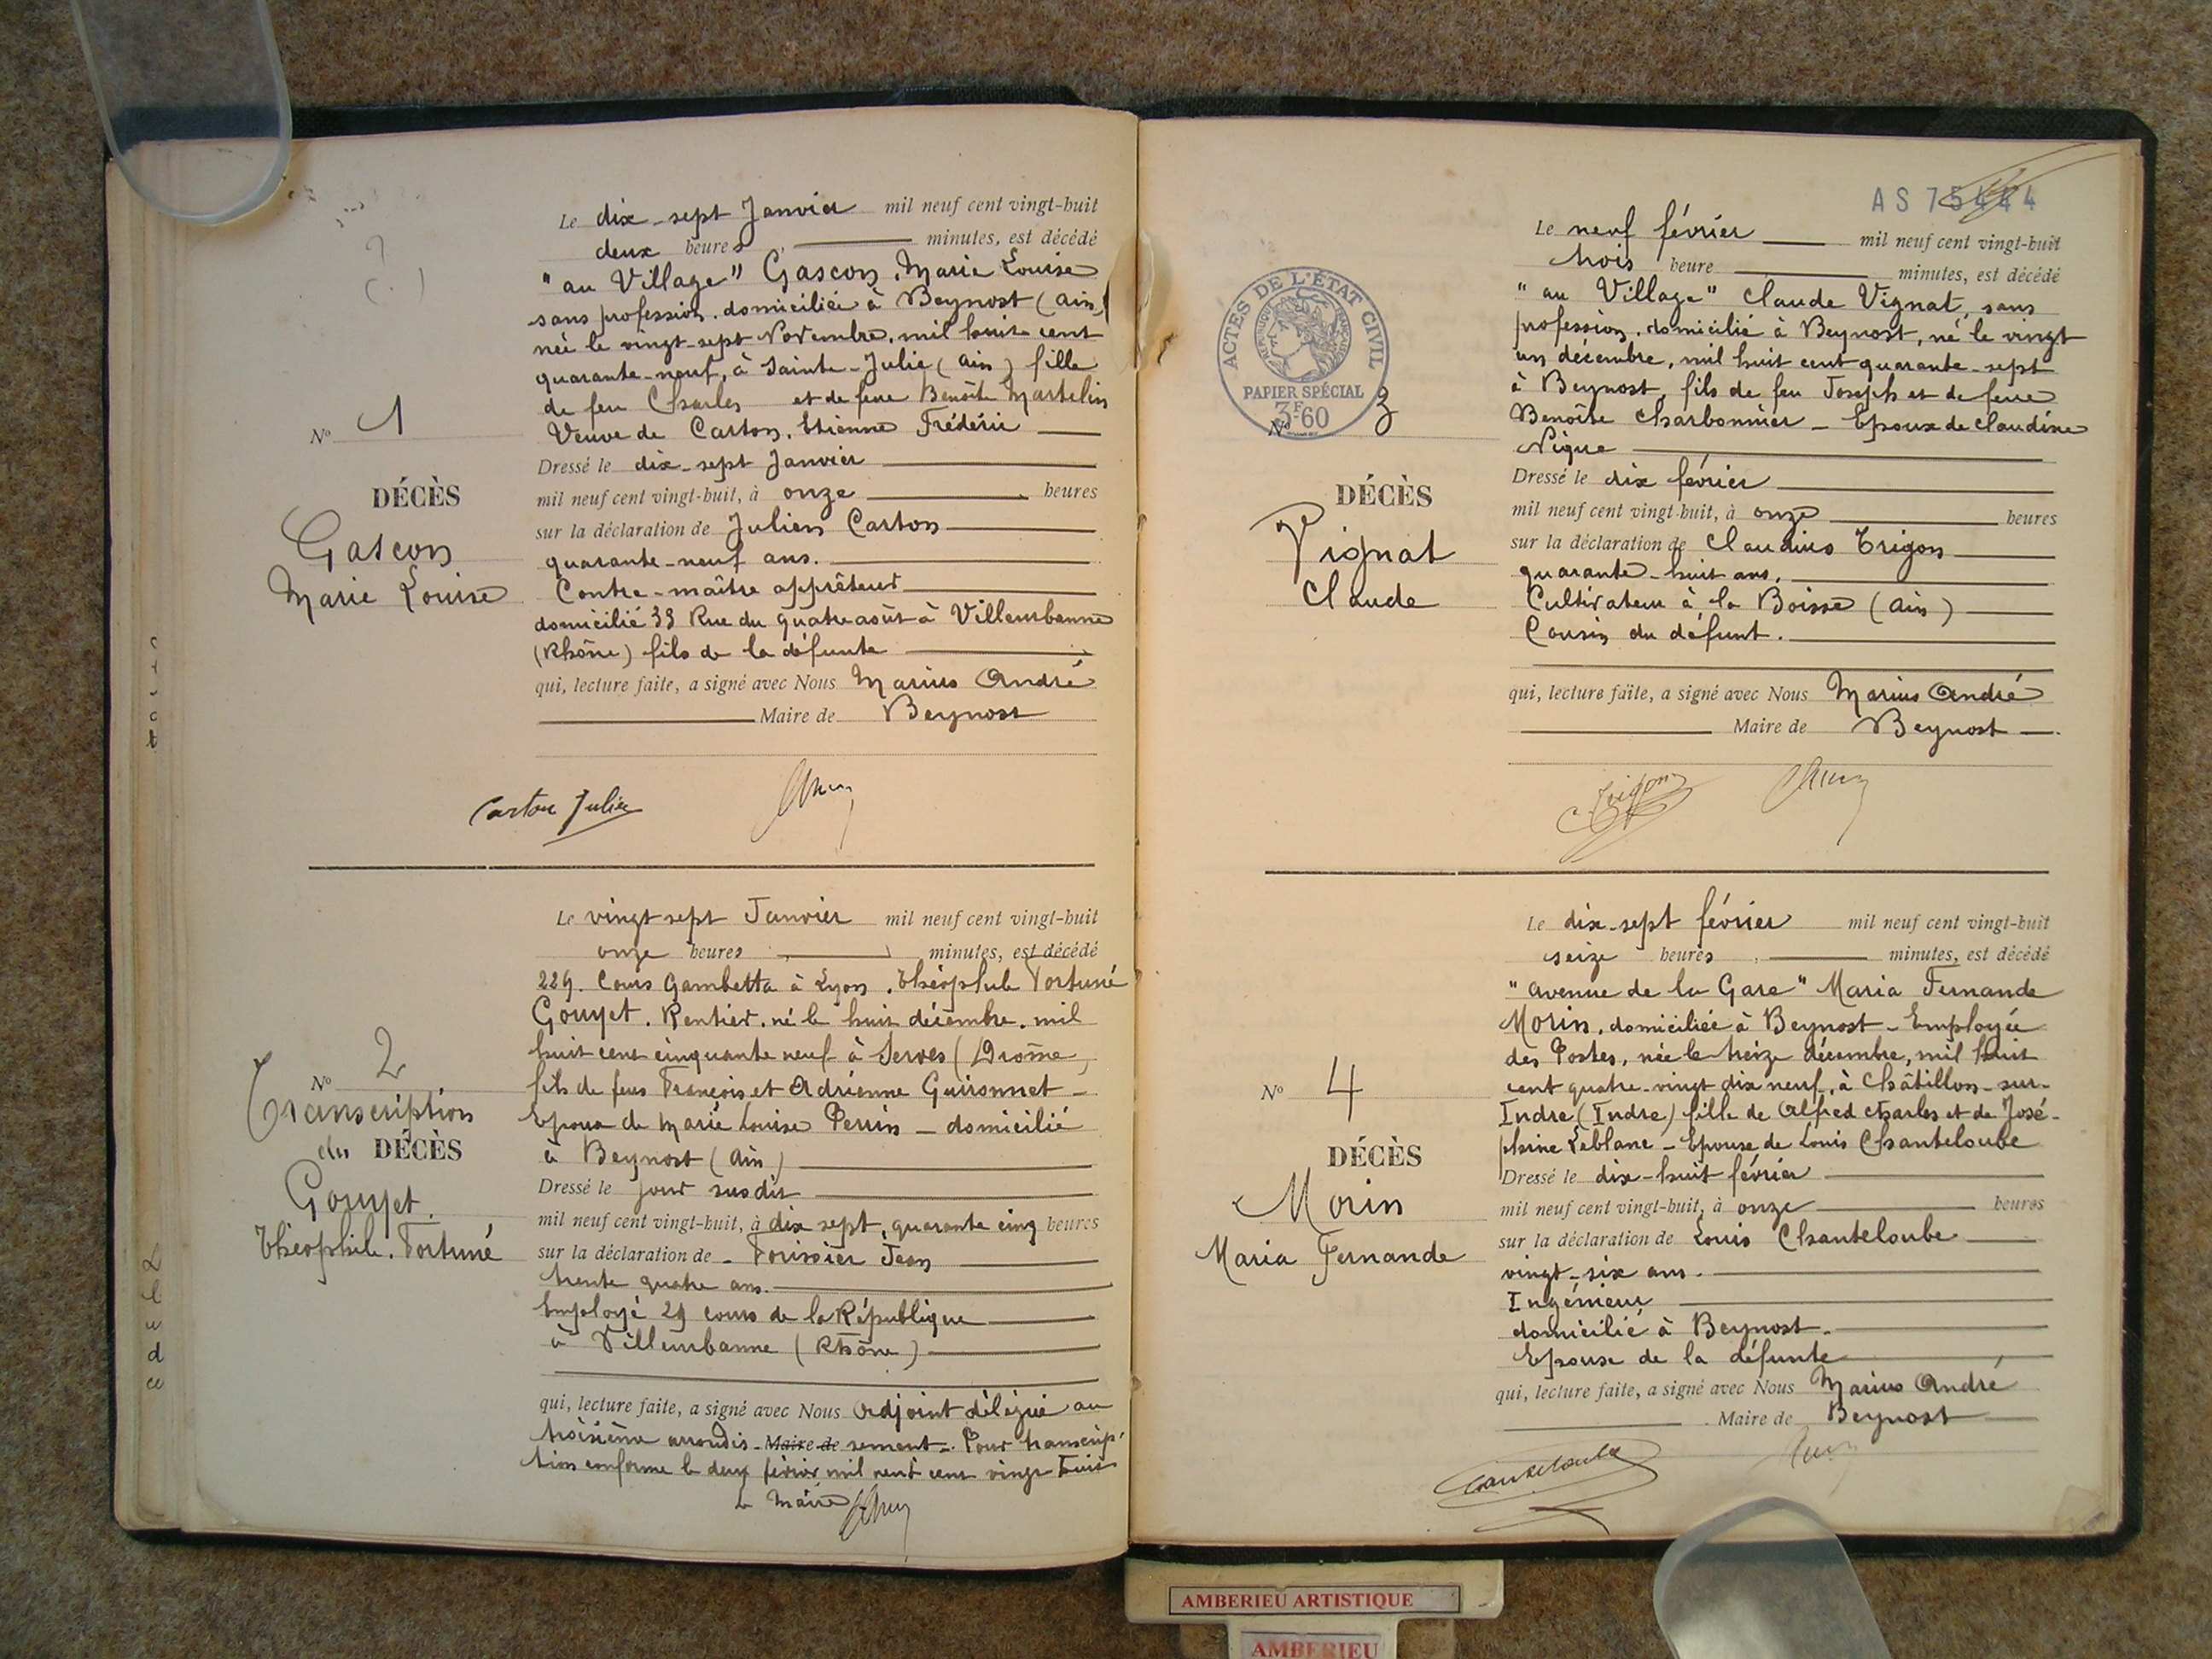 Le dix-sept Janvier mil neuf cent vingt-huit
deux heures, minutes, est décédé
"au Village" Gascon, Marie Louise
sans profession, domiciliée à Beynost (Ain)
née le vingt-sept Novembre, mil huit cent
quarante-neuf, à Sainte-Julie (Ain) fille
de feu Charles et de feue Benoîte Martelin
Veuve de Carton, Etienne Frédéric
Nº 1
Dressé le dix-sept Janvier
mil neuf cent vingt-huit, à onze heures
DÉCÈS
sur la déclaration de Julien Carton
Gascon
quarante-neuf ans.
Marie Louise
Contre-maître apprêteur
domicilié 33 Rue du quatre août à Villeurbanne
(Rhône) fils de la défunte
qui, lecture faite, a signé avec Nous Marius André
Maire de Beynost
Carton Julien
Le vingt sept Janvier mil neuf cent vingt-huit
onze heures, minutes, est décédé
229. Cours Gambetta à Lyon. Théophile Fortuné
Gouyet. Rentier. né le huit décembre. mil
huit cent cinquante neuf à Serves (Drôme)
fils de feus François et Adrienne Guironnet -
Epoux de Marie Louise Perrin - domicilié
à Beynost (Ain)
Nº 2
Transcription
du DÉCÈS
Gouyet.
Théophile. Fortuné
Dressé le jour susdit
mil neuf cent vingt-huit, à dix sept, quarante cinq heures
sur la déclaration de - Jean
trente quatre ans.
Employé 29 cours de la République
à Villeurbanne (Rhône)
qui, lecture faite, a signé avec Nous Adjoint délégué au
troisième arrondis- Maire de sement - Pour transcrip-
tion conforme le deux février mil neuf cent vingt huit
Le Maire
AS 75444
Le neuf février mil neuf cent vingt-huit
trois heure minutes, est décédé
"au Village" Claude Vignat, sans
profession, domicilié à Beynost, né le vingt
un décembre, mil huit cent quarante-sept
à Beynost, fils de feu Joseph et de feue
Benoîte Charbonnier - Epoux de Claudine
Nique
ACTES DE L'ÉTAT CIVIL
RÉPUBLIQUE FRANÇAISE
PAPIER SPÉCIAL
3F60
Nº 3
DÉCÈS
Vignat
Claude
Dressé le dix février
mil neuf cent vingt-huit, à onze heures
sur la déclaration de Claudius Trigon
quarante-huit ans,
Cultivateur à la Boisse (Ain)
Cousin du défunt.
qui, lecture faite, a signé avec Nous Marius André
Maire de Beynost
Trigon
Le dix-sept février mil neuf cent vingt-huit
seize heures, minutes, est décédé
"avenue de la Gare" Maria Fernande
Morin, domiciliée à Beynost - Employée
des Postes, née le treize décembre, mil huit
cent quatre-vingt dix neuf, à Châtillon-sur-
Indre (Indre) fille de Alfred Charles et de José-
phine Leblanc - Epouse de Louis Chanteloube
Nº 4
DÉCÈS
Morin
Maria Fernande
Dressé le dix-huit février
mil neuf cent vingt-huit, à onze heures
sur la déclaration de Louis Chanteloube
vingt-six ans.
Ingénieur
domicilié à Beynost.
Epouse de la défunte
qui, lecture faite, a signé avec Nous Marius André
Maire de Beynost
Chanteloube
AMBERIEU ARTISTIQUE
AMBERIEU